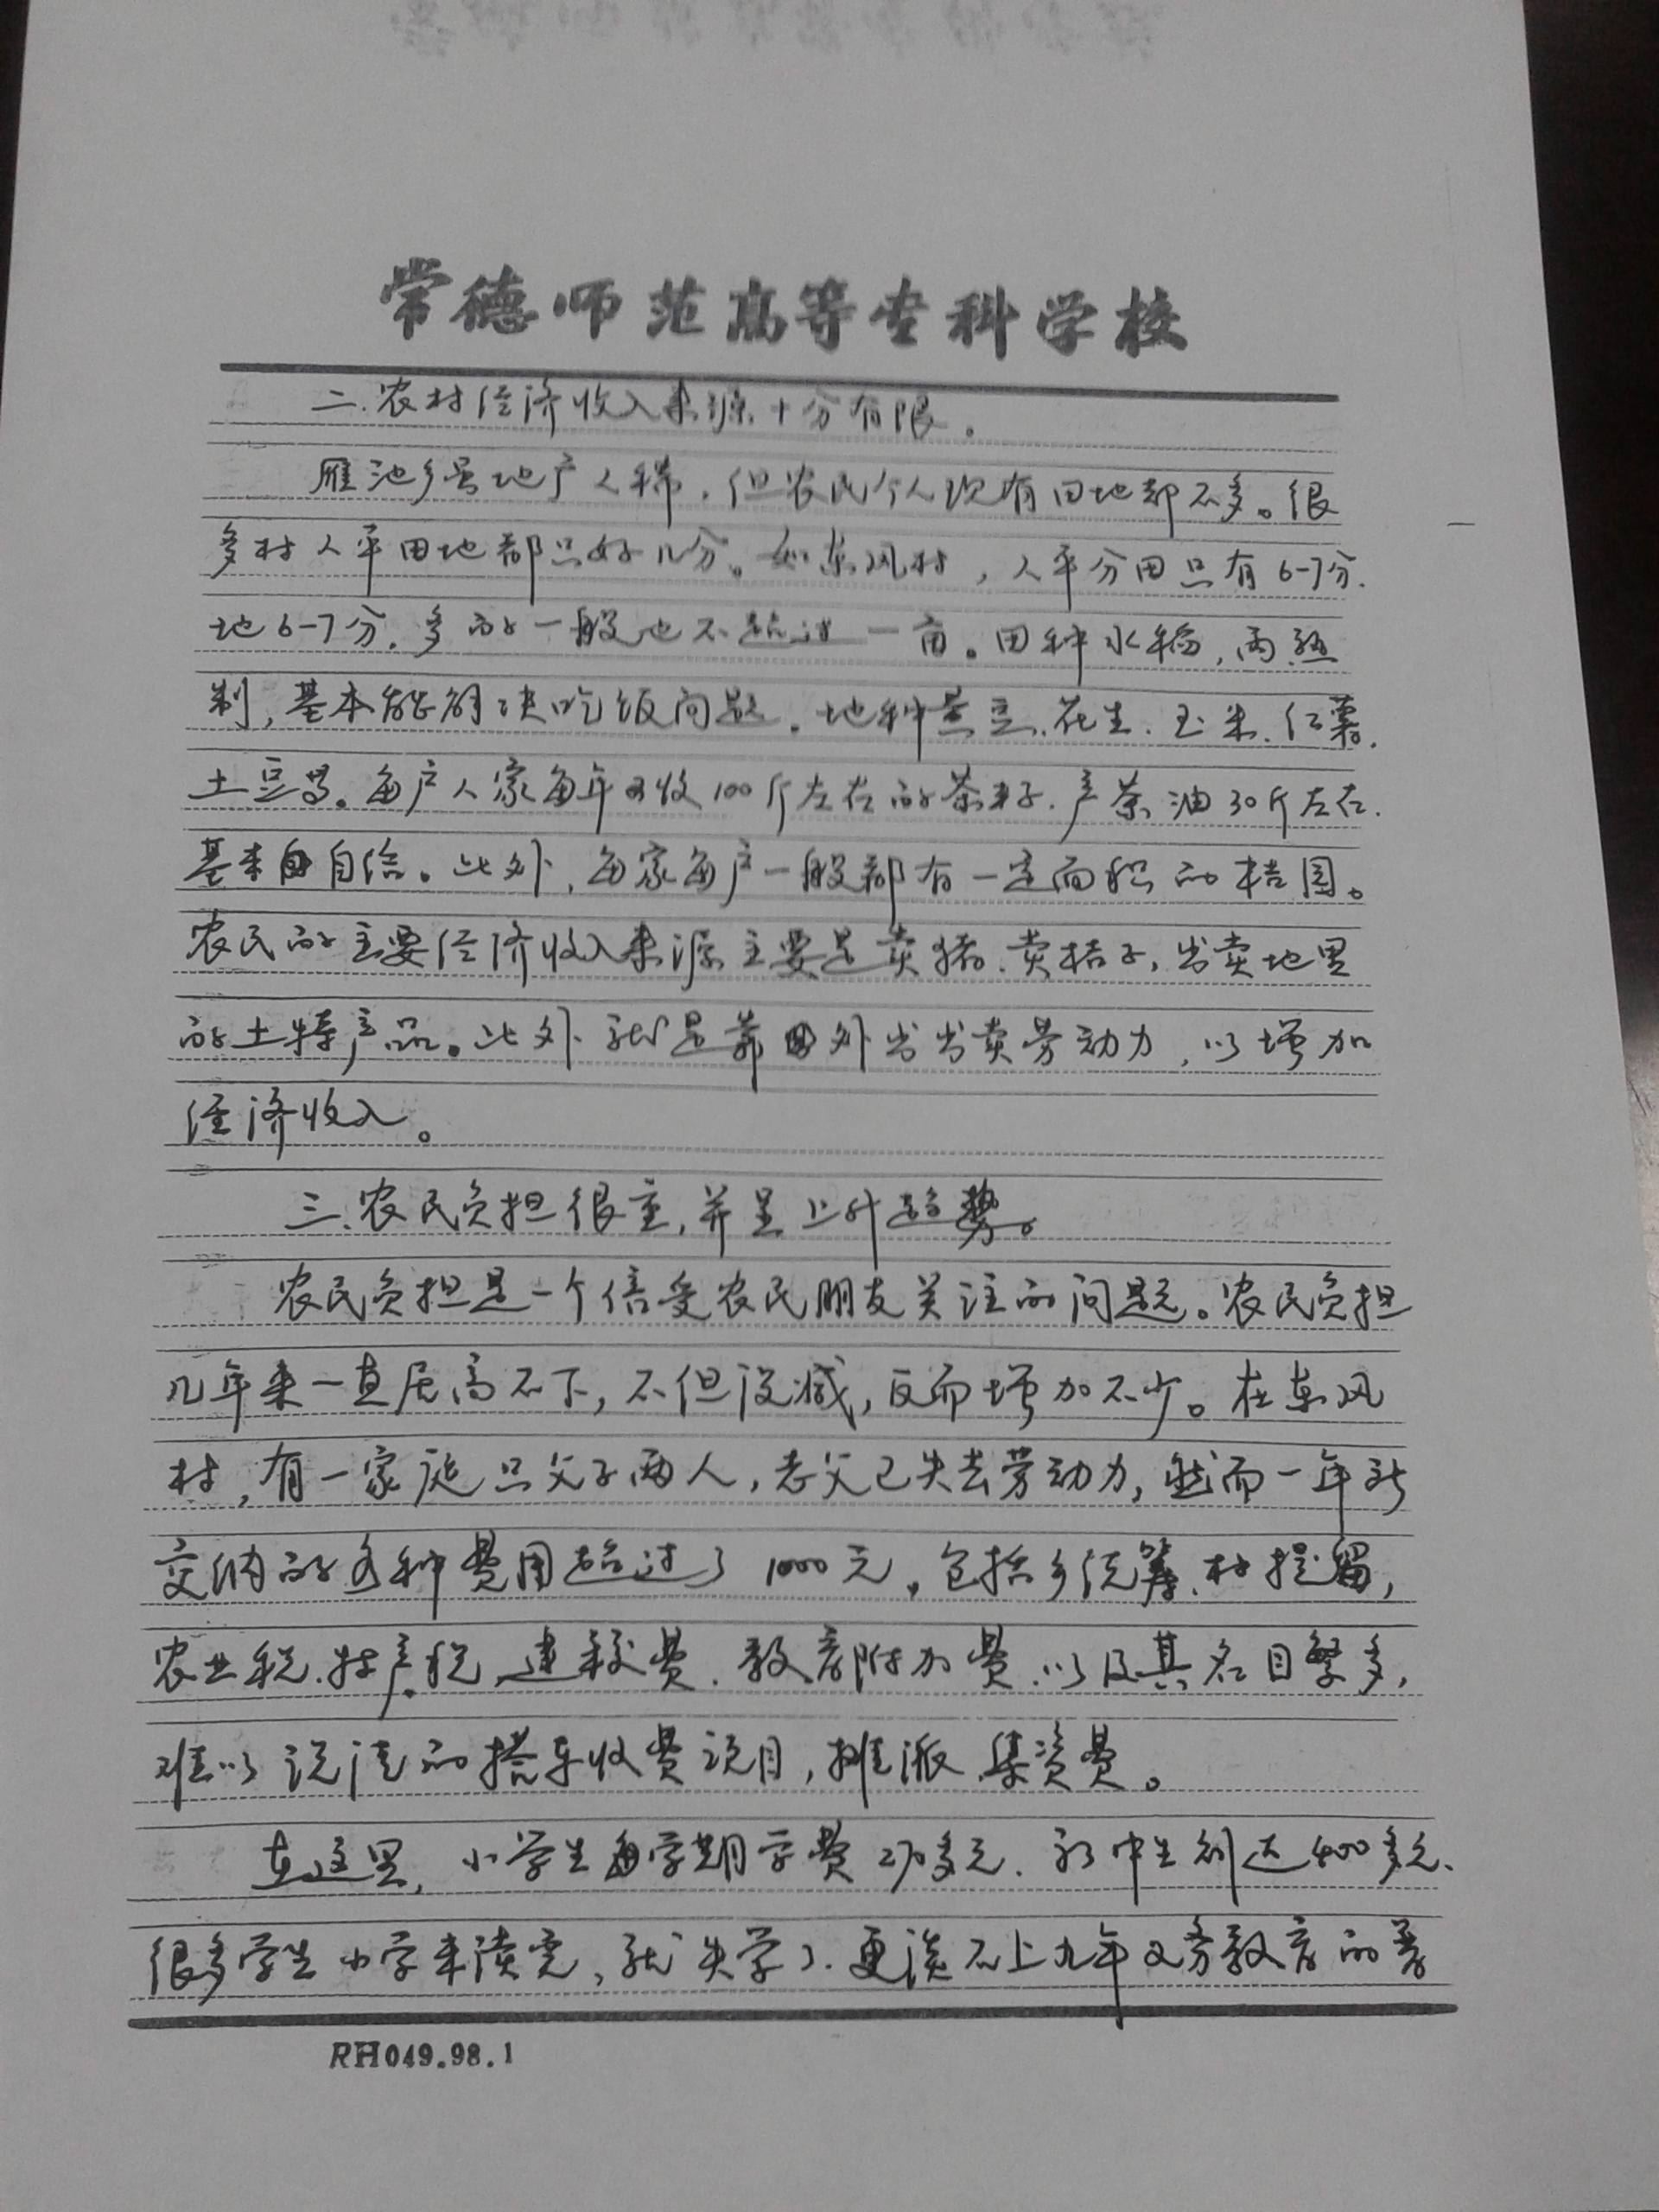 常德师范高等专科学校
二.农村经济收入来源十分有限。
雁池乡虽地广人稀,但农民个人现有田地都不多。很
多村人平田地都只好几分。如东风村,人平分田只有6-7分.
地6-7分.多的一般也不超过一亩。田种水稻,两熟
制,基本能解决吃饭问题.地种黄豆.花生.玉米.红薯.
土豆等。每户人家每年可收100斤左右的茶籽.产茶油30斤左右.
基本自给。此外,每家每户一般都有一定面积的桔园。
农民的主要经济收入来源主要是卖猪.卖桔子,出卖地里
的土特产品。此外就是靠外出出卖劳动力,以增加
经济收入。
三.农民负担很重,并呈上升趋势。
农民负担是一个倍受农民朋友关注的问题。农民负担
几年来一直居高不下,不但没减,反而增加不少。在东风
村,有一家庭只父子两人,老父已失去劳动力,然而一年所
交纳的各种费用超过了1000元。包括乡统筹.村提留,
农业税.特产税.建校费.教育附加费.以及其名目繁多,
难以说清的搭车收费项目,摊派.集资费。
在这里,小学生每学期学费270多元.初中生则达400多元、
很多学生小学未读完,就失学了.更谈不上九年义务教育的普
RH049.98.1